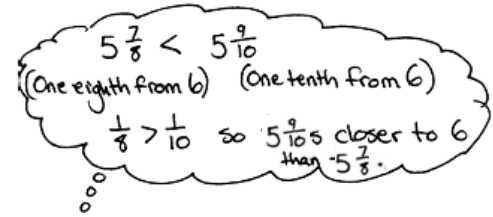 5 7/8 < 5 9/10
(One eighth from 6) (One tenth from 6)
1/8 > 1/10 so 5 9/10 s closer to 6
than 5 7/8.